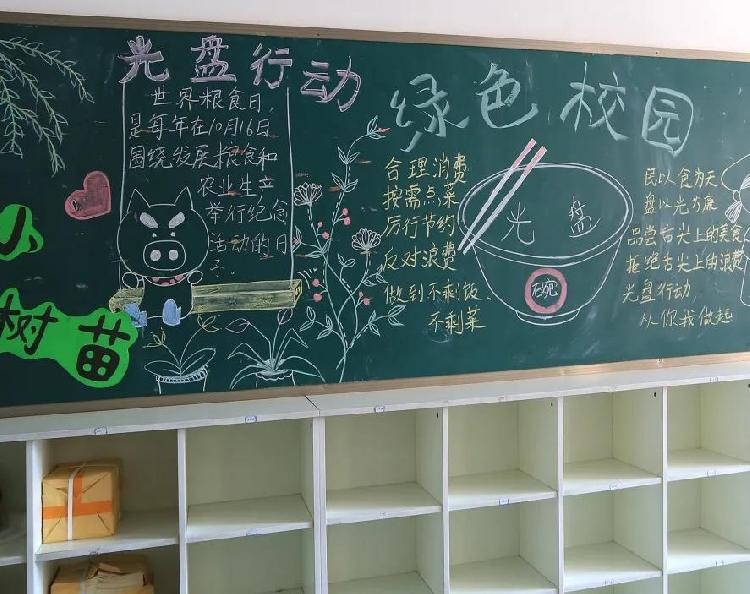 光盘行动
世界粮食日,
是每年在10月16日
围绕发展粮食和
农业生产
举行纪念
活动的日
子.
小
树苗
绿色校园
合理消费
按需点菜
厉行节约
反对浪费
做到不剩饭、
不剩菜
光盘
民以食为天
盘以光为廉
品尝舌尖上的美食
拒绝舌尖上的浪费
光盘行动,
从你我做起